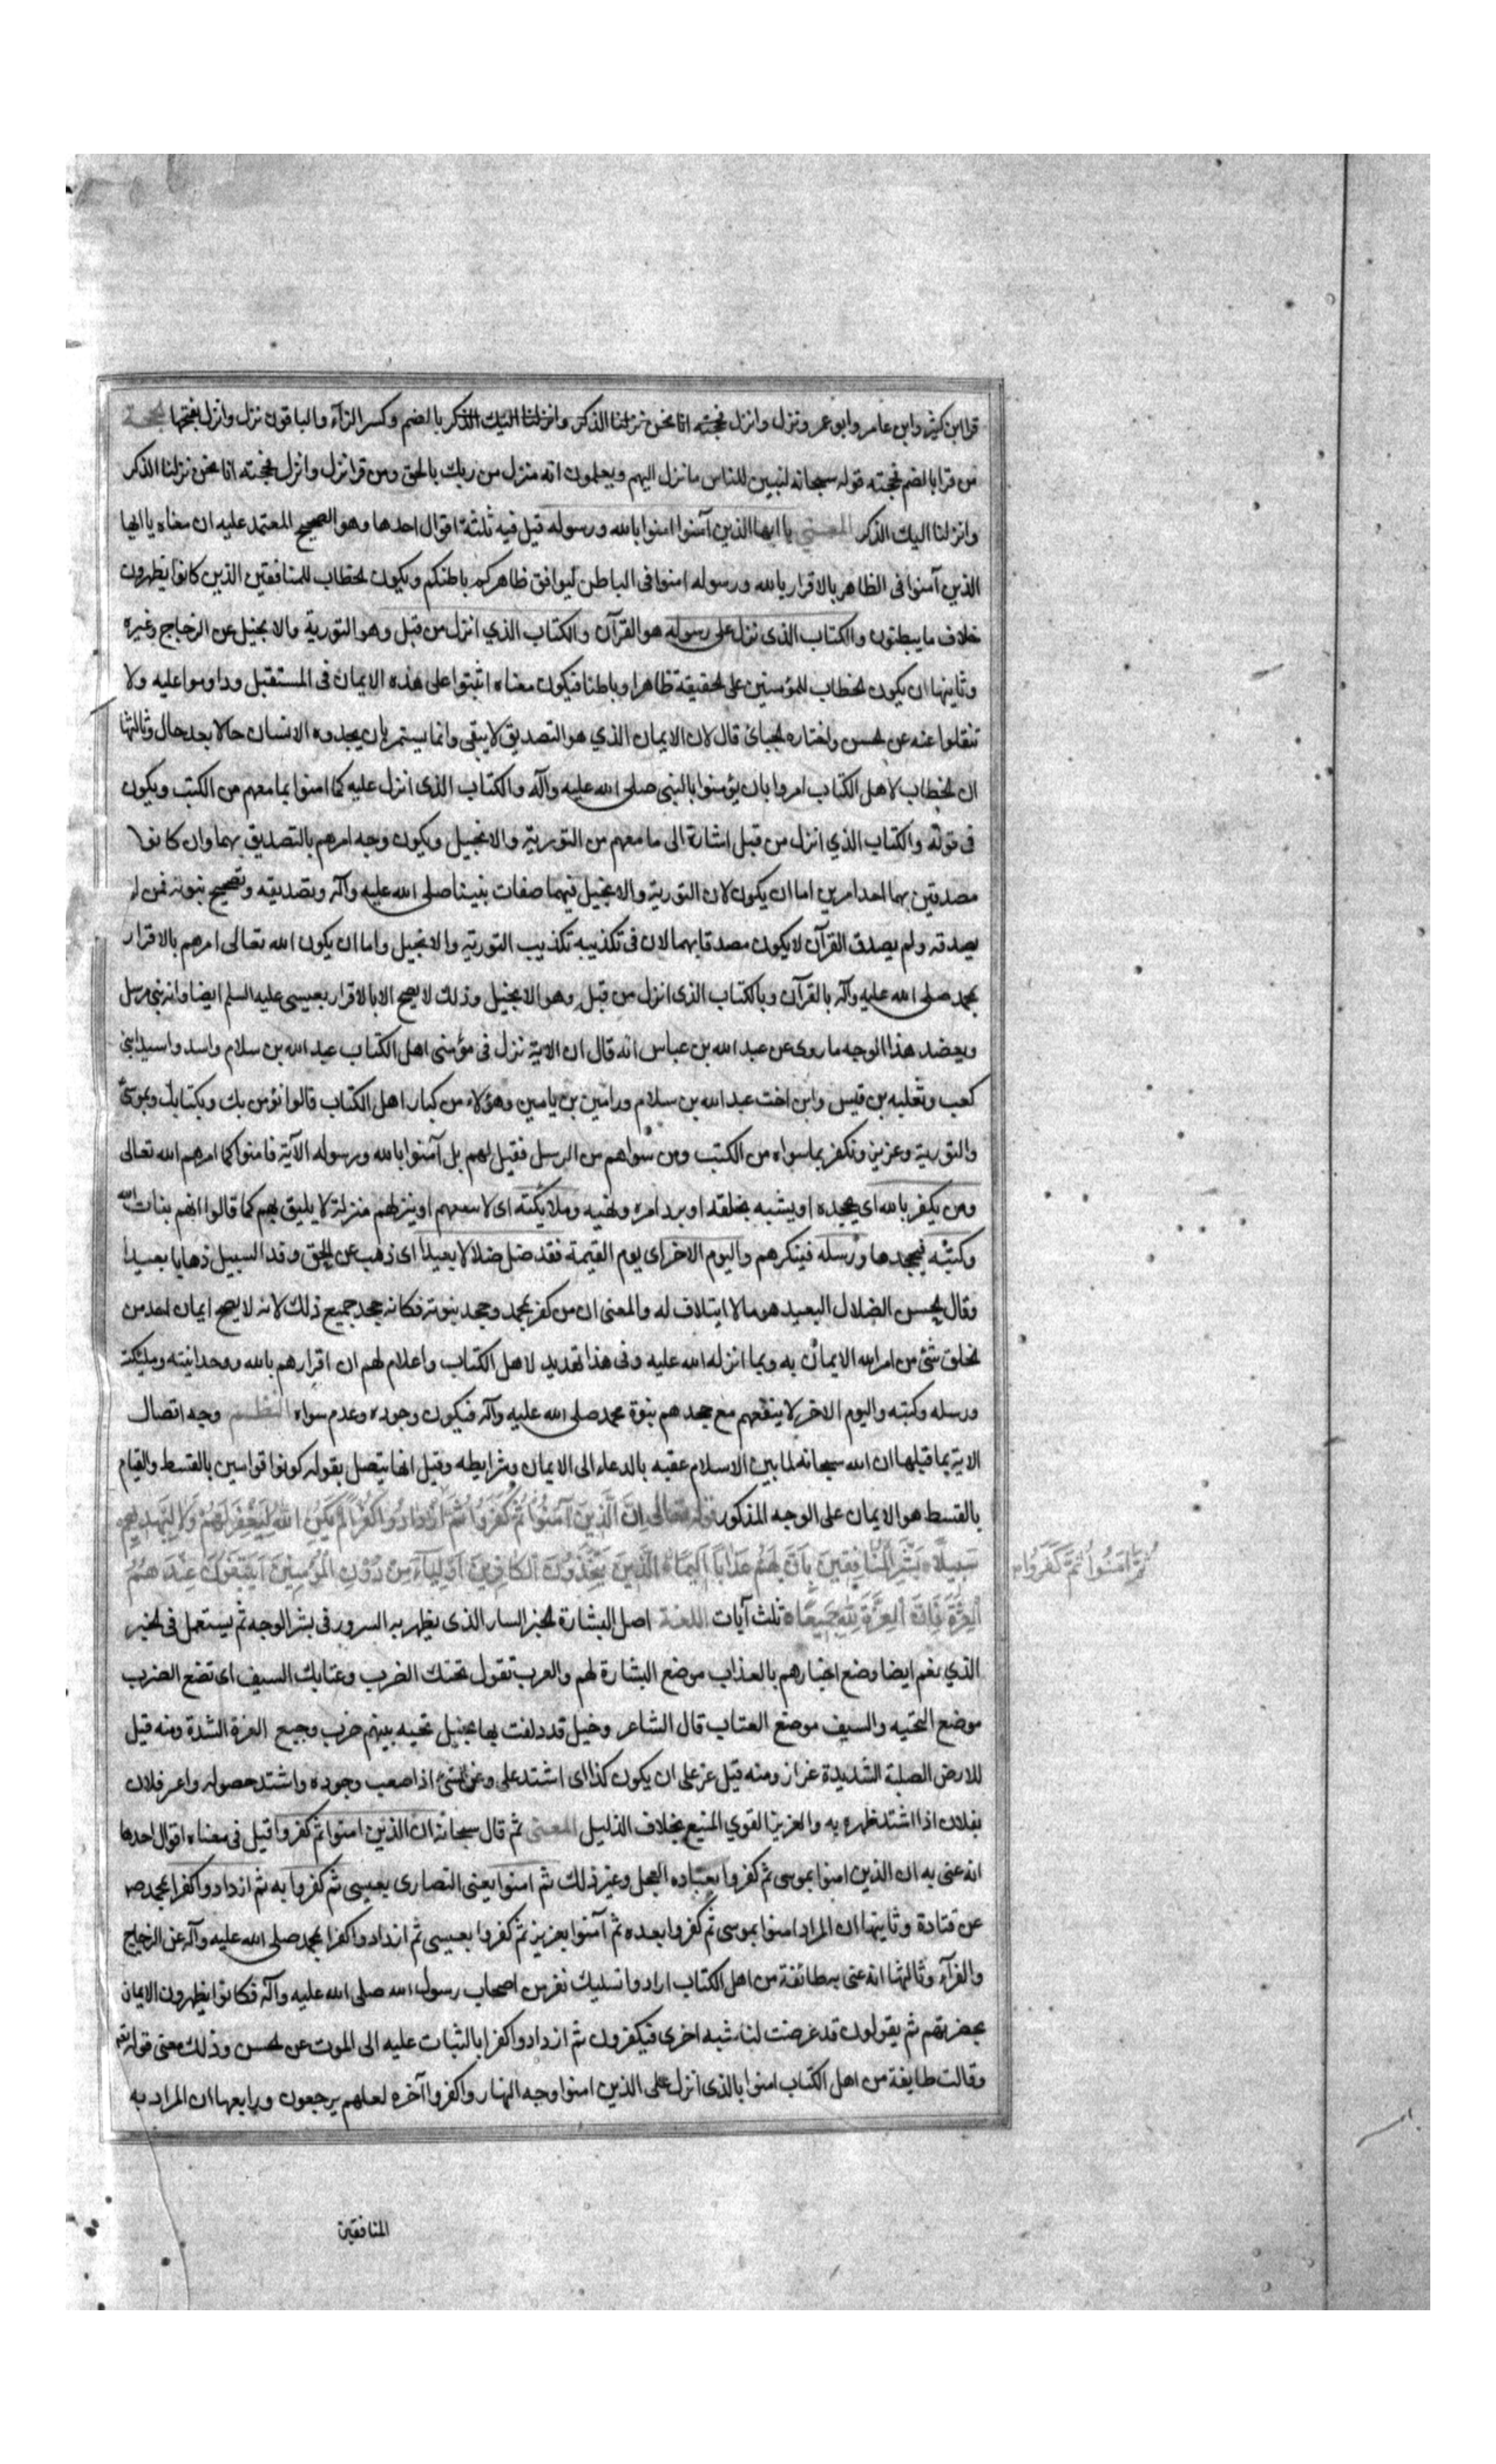 قرا ابن كثير وابن عامر وابو عمرو نزل وانزل فحجته انا نحن نزلنا الذكر وانزلنا اليك الذكر بالضم وكسر الزاء والباقون نزل وانزل بفتحها الحجة
من قرا بالضم فحجته قوله سبحانه لتبين للناس ما نزل اليهم ويعلمون انه منزل من ربك بالحق ومن قرا نزل وانزل فحجته انا نحن نزلنا الذكر
وانزلنا اليك الذكر المعنى يا ايها الذين آمنوا امنوا بالله ورسوله قيل فيه ثلثة اقوال احدها وهو الصحيح المعتمد عليه ان معناه يا ايها
الذين آمنوا فى الظاهر بالاقرار بالله ورسوله امنوا فى الباطن ليوافق ظاهركم باطنكم ويكون الخطاب للمنافقين الذين كانوا يظهرون
خلاف ما يبطنون والكتاب الذى نزل على رسوله هو القرآن والكتاب الذي انزل من قبل وهو التورية والانجيل عن الزجاج وغيره
وثانيها ان يكون الخطاب للمؤمنين على الحقيقة ظاهرا وباطنا فيكون معناه اثبتوا على هذه الايمان فى المستقبل وداوموا عليه ولا
تنقلوا عنه عن الحسن واختاره الجبائى قال لان الايمان الذي هو التصديق لا يبقى وانما يستمر بان يجدده الانسان حالا بعد حال وثالثها
ان الخطاب لاهل الكتاب امروا بان يؤمنوا بالنبى صلى الله عليه وآله والكتاب الذى انزل عليه كما امنوا بما معهم من الكتب ويكون
فى قوله والكتاب الذي انزل من قبل اشارة الى ما معهم من التورية والانجيل ويكون وجه امرهم بالتصديق بهما وان كانوا
مصدقين بهما احد امرين اما ان يكون لان التورية والانجيل فيهما صفات نبينا صلى الله عليه وآله وتصديقه وتصحيح نبوته فمن لم
يصدقه ولم يصدق القرآن لا يكون مصدقا بهما لان فى تكذيبه تكذيب التورية والانجيل واما ان يكون الله تعالى امرهم بالاقرار
بمحمد صلى الله عليه وآله بالقرآن وبالكتاب الذى انزل من قبل وهو الانجيل وذلك لا يصح الا بالاقرار بعيسى عليه السلم ايضا وانه نبى مرسل
ويعضد هذا الوجه ما روى عن عبد الله بن عباس انه قال ان الاية نزل فى مؤمنى اهل الكتاب عبد الله بن سلام واسد واسيد ابنى
كعب وثعلبه بن قيس وابن اخت عبد الله بن سلام ورامين بن يامين وهؤلاء من كبار اهل الكتاب قالوا نؤمن بك وبكتابك وبموسى
والتورية وعزير ونكفر بما سواه من الكتب ومن سواهم من الرسل فقيل لهم بل آمنوا بالله ورسوله الآية فامنوا كما امرهم الله تعالى
ومن يكفر بالله اى يجحده او يشبه بخلقه او يرد امره ونهيه وملايكته اى لا سعهم او ينزلهم منزلة لا يليق بهم كما قالوا انهم بنات الله
وكتبه فيجحدها ورسله فينكرهم واليوم الاخر اى يوم القيمة فقد ضل ضلالا بعيدا اى ذهب عن الحق وقد السبيل ذهابا بعيدا
وقال الحسن الضلال البعيد هو ما لا ايتلاف له والمعنى ان من كفر بمحمد وجحد نبوته فكانه جحد جميع ذلك لانه لا يصح ايمان احد من
الخلق شئ من امر الله الايمان به وبما انزله الله عليه وفى هذا تهديد لاهل الكتاب واعلام لهم ان اقرارهم بالله ووحدانيته وملئكته
ورسله وكتبه واليوم الاخر لا ينفعهم مع جحدهم بنوة محمد صلى الله عليه وآله فيكون وجوده وعدم سواه النظم وجه اتصال
الاية بما قبلها ان الله سبحانه لما بين الاسلام عقبه بالدعاء الى الايمان وشرايطه وقيل انها يتصل بقوله كونوا قوامين بالقسط والقيام
بالقسط هو الايمان على الوجه المذكور قوله تعالى اِنَّ الَّذِينَ آمَنُوا ثُمَّ كَفَرُوا ثُمَّ ازْدَادُوا كُفْرًا لَمْ يَكُنِ اللهُ لِيَغْفِرَ لَهُمْ وَلَا لِيَهْدِيَهُمْ
سَبِيلًا بَشِّرِ الْمُنَافِقِينَ بِاَنَّ لَهُمْ عَذَابًا اَلِيمًا الَّذِينَ يَتَّخِذُونَ الْكَافِرِينَ اَوْلِيَاءَ مِنْ دُونِ الْمُؤْمِنِينَ اَيَبْتَغُونَ عِنْدَهُمُ
ثُمَّ اٰمَنُوا ثُمَّ كَفَرُوا
الْعِزَّةَ فَاِنَّ الْعِزَّةَ لِلّٰهِ جَمِيعًا ثلث آيات اللغة اصل البشارة الخبر السار الذى يظهر به السرور فى بشر الوجه ثم يستعمل فى الخبر
الذي يغم ايضا وضع اخبارهم بالعذاب موضع البشارة لهم والعرب تقول تحتك الضرب وعتابك السيف اى تضع الضرب
موضع التحيه والسيف موضع العتاب قال الشاعر وخيل قد دلفت بها بخيل تحيه بينهم ضرب وجيع العزة الشدة ومنه قيل
للارض الصلبة الشديدة عزاز ومنه قيل عز على ان يكون كذا اى اشتد على وعز الشئ اذا صعب وجوده واشتد حصوله واعز فلان
بفلان اذا اشتد ظهره به والعزيز القوي المنيع بخلاف الذليل المعنى ثم قال سبحانه ان الذين امنوا ثم كفروا قيل فى معناه اقوال احدها
انه عنى به ان الذين امنوا بموسى ثم كفروا بعباده العجل وغير ذلك ثم امنوا يعنى النصارى بعيسى ثم كفروا به ثم ازدادوا كفرا بمحمد ص
عن قتادة وثانيها ان المراد امنوا بموسى ثم كفروا بعده ثم آمنوا بعزير ثم كفروا بعيسى ثم ازدادوا كفرا بمحمد صلى الله عليه وآله عن الزجاج
والفرآء وثالثها انه عنى به طائفة من اهل الكتاب ارادوا تسليك نفر من اصحاب رسول الله صلى الله عليه وآله فكانوا يظهرون الايمان
بحضرتهم ثم يقولون قد عرضت لنا شبه اخرى فيكفرون ثم ازدادوا كفرا بالثبات عليه الى الموت عن الحسن وذلك معنى قوله تع
وقالت طايفة من اهل الكتاب امنوا بالذى انزل على الذين امنوا وجه النهار واكفروا آخره لعلهم يرجعون ورابعها ان المراد به
المنافقين